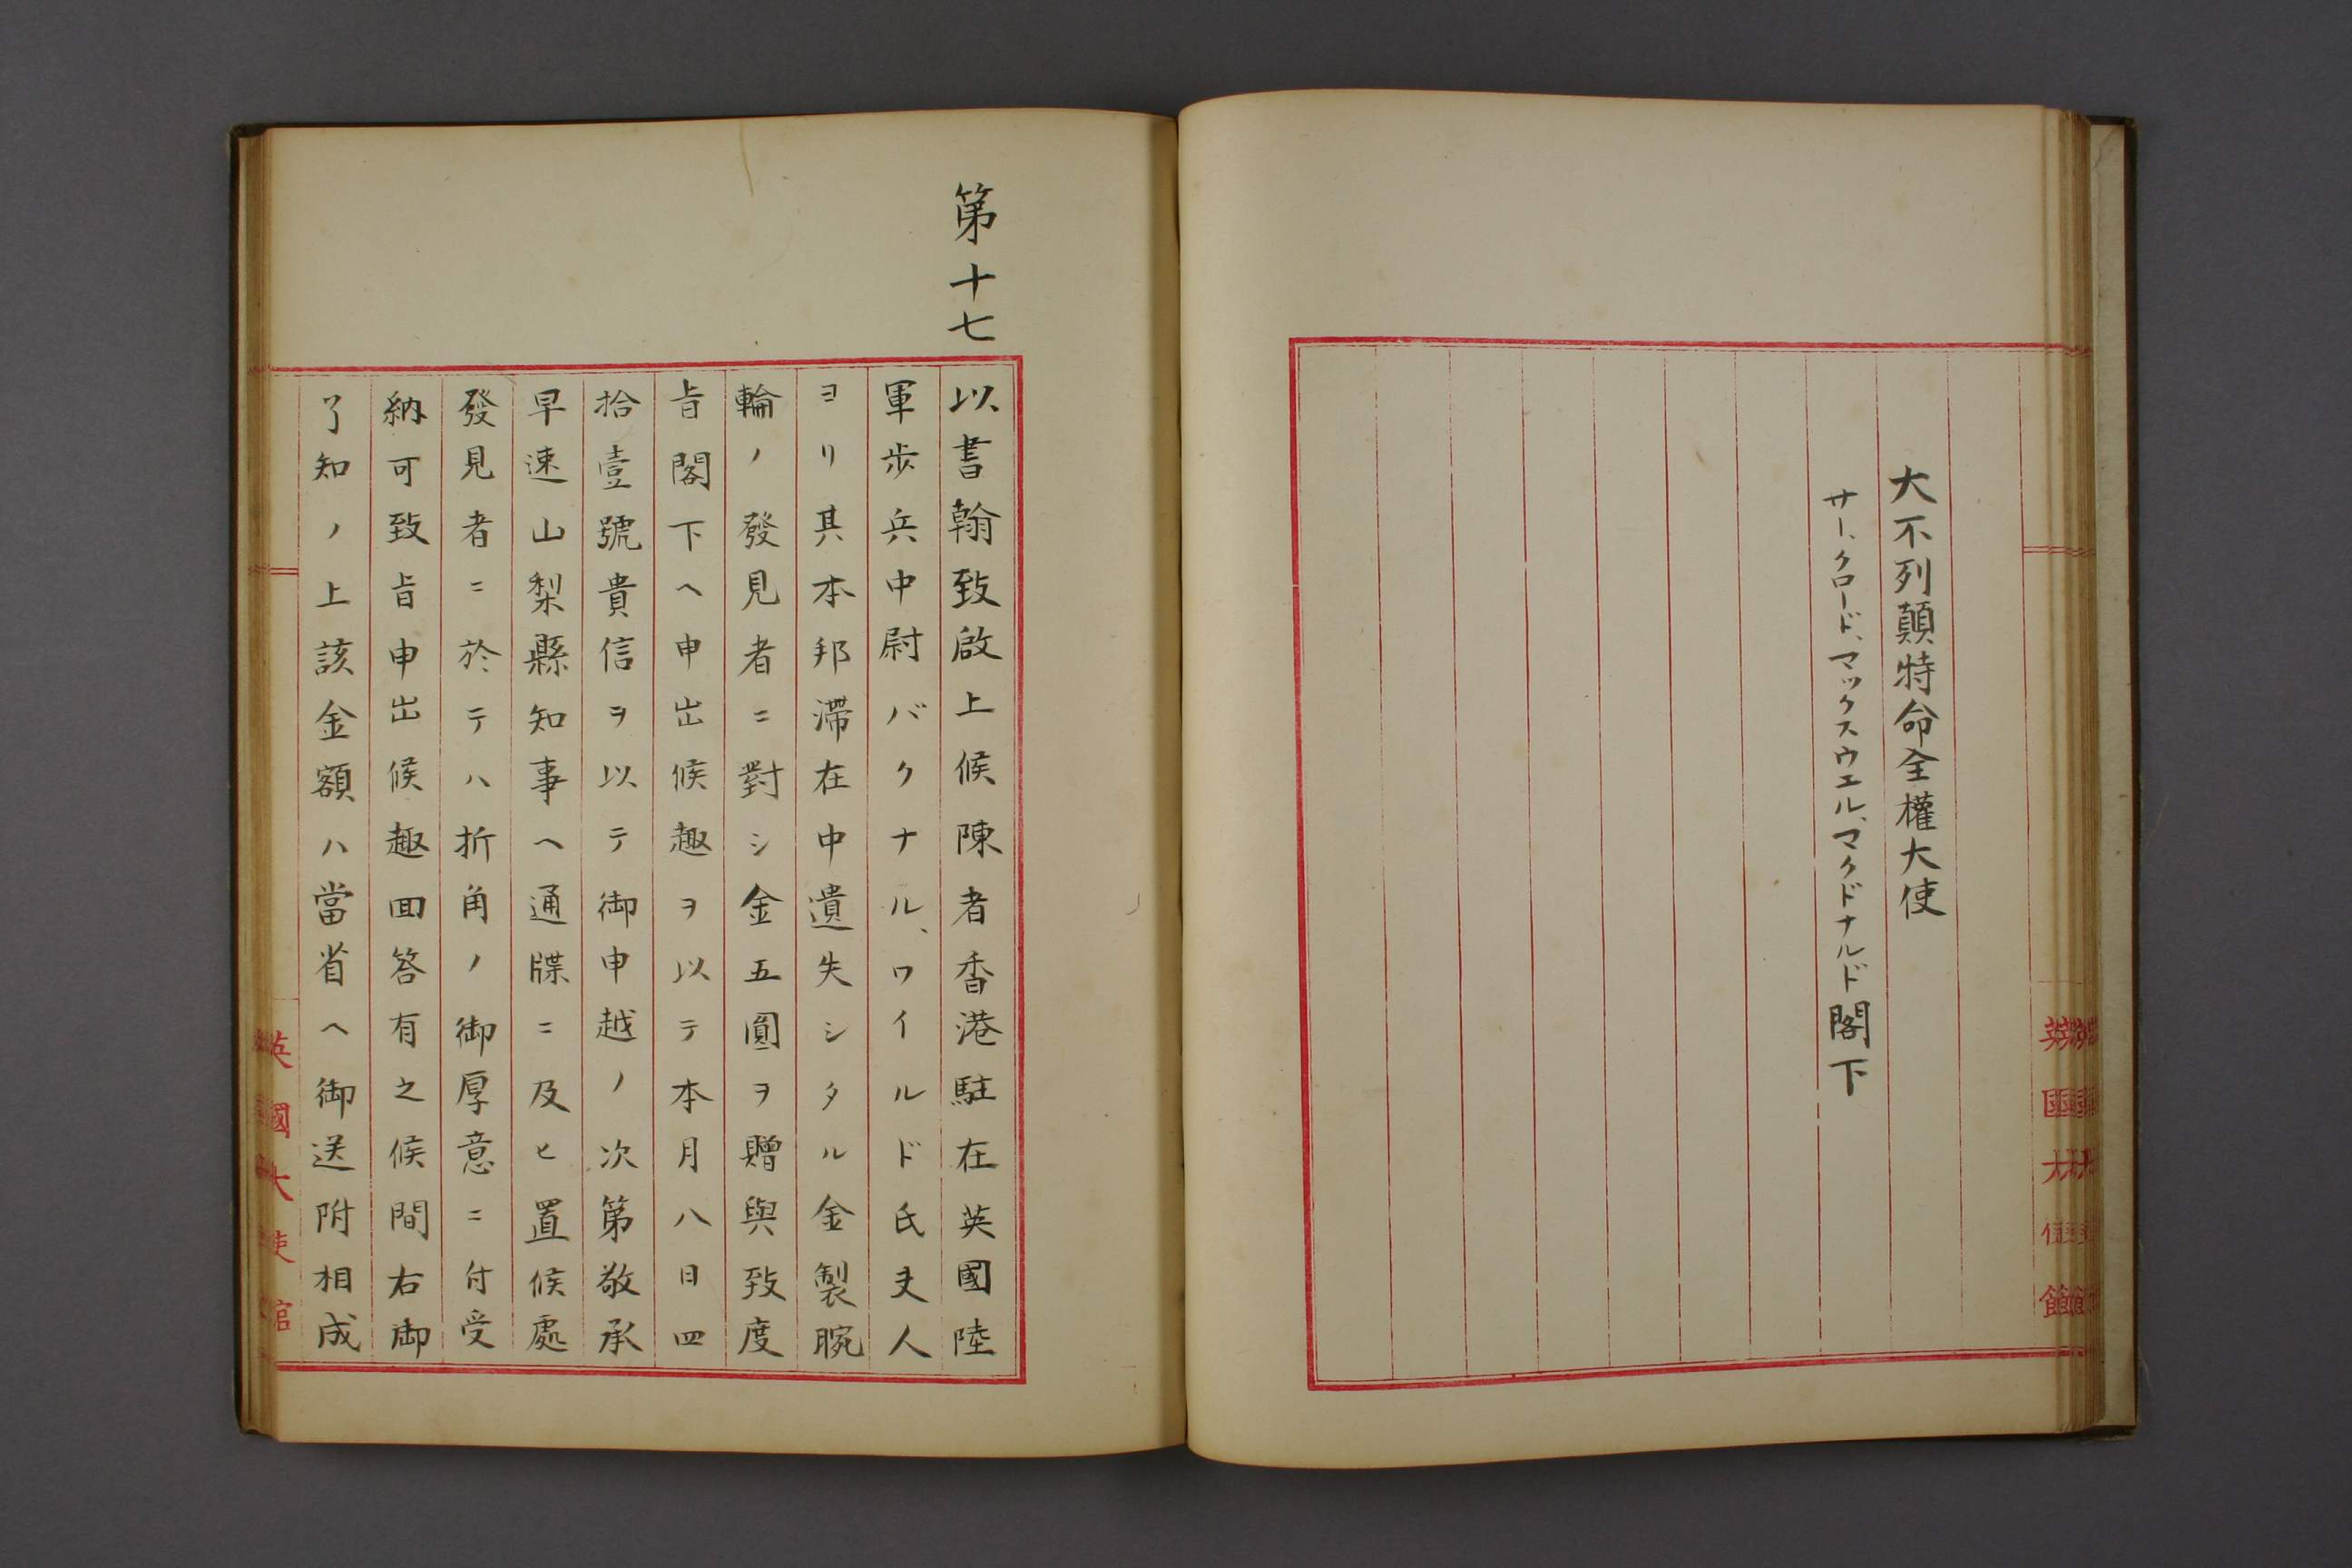 大不列顛特命全權大使
サー、クロード、マックスウエル、マクドナルド閣下
英國大使館
第十七
以書翰致啟上候陳者香港駐在英國陸
軍歩兵中尉バクナル、ワイルド氏夫人
ヨリ其本邦滯在中遺失シタル金製腕
輪ノ發見者ニ對シ金五圓ヲ贈與致度
旨閣下ヘ申出候趣ヲ以テ本月八日四
拾壹號貴信ヲ以テ御申越ノ次第敬承
早速山梨縣知事ヘ通牒ニ及ヒ置候處
發見者ニ於テハ折角ノ御厚意ニ付受
納可致旨申出候趣回答有之候間右御
了知ノ上該金額ハ當省ヘ御送附相成
英國大使館